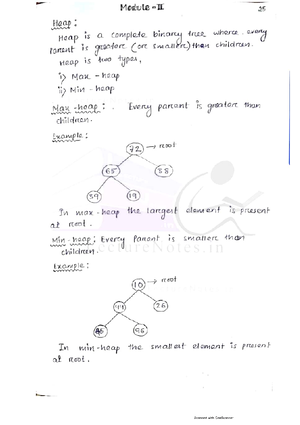 Module - II
25
Heap :
Heap is a complete binary tree where every
parent is greater (or smaller) than children.
Heap is two types,
i) Max - heap
ii) Min - heap
Max - heap : Every parent is greater than
children.
Example :
72 → root
65 38
39 19
In max - heap the largest element is present
at root.
Min - heap : Every Parent is smaller than
children.
Example :
10 → root
26
96
In min - heap the smallest element is present
at root.
Scanned with CamScanner